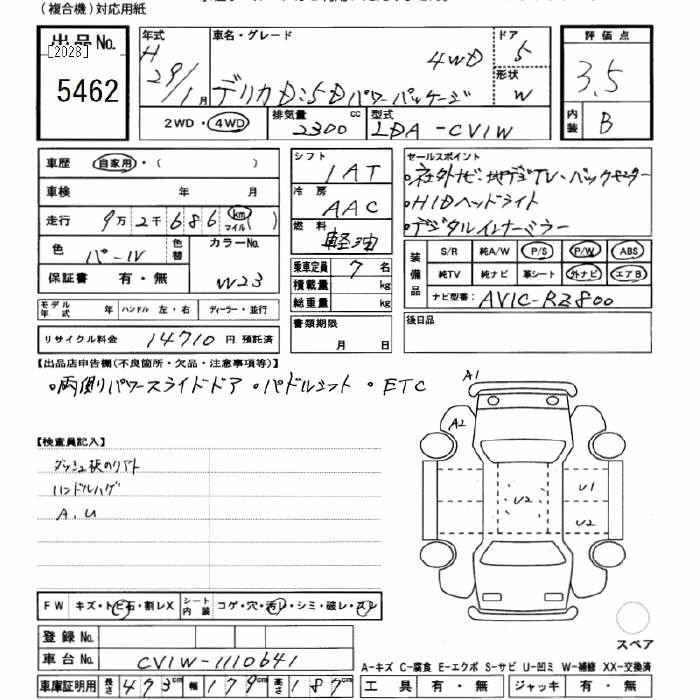 (複合機)対応用紙
出品No.
[2028]
5462
年式 H 29/1月
車名・グレード
デリカD:5 D パワーパッケージ 4WD
ドア 5
形状 W
評価点
3.5
内装 B
2WD・4WD
排気量 2300 cc
型式 LDA-CV1W
車歴 自家用・( )
車検 年 月
走行 9万2千686 km マイル( )
色 パール 色替 カラーNo. W23
保証書 有・無
モデル年式 年 ハンドル 左・右 ディーラー・並行
リサイクル料金 14710円 預託済
シフト 1AT
冷房 AAC
燃料 軽油
乗車定員 7名
積載量 kg
総重量 kg
書類期限 月 日
セールスポイント
・社外ナビ・地デジTV・バックモニター
・HIDヘッドライト
・デジタルインナーミラー
装備品
S/R 純A/W P/S P/W ABS
純TV 純ナビ 革シート 外ナビ エアB
ナビ型番: AVIC-RZ800
後日品
【出品店申告欄(不良箇所・欠品・注意事項等)】
・両側パワースライドドア ・パドルシフト ・ETC
【検査員記入】
ハンドルハゲ
A.U
A1
A2
U2
U1
U2
スペア
FW キズ・トビ石・割レX シート内装 コゲ・穴・汚レ・シミ・破レ・スレ
登録No.
車台No. CV1W-1110641
車庫証明用 長さ 473cm 幅 179cm 高さ 187cm
A-キズ C-腐食 E-エクボ S-サビ U-凹ミ W-補修 XX-交換済
工具 有・無 ジャッキ 有・無